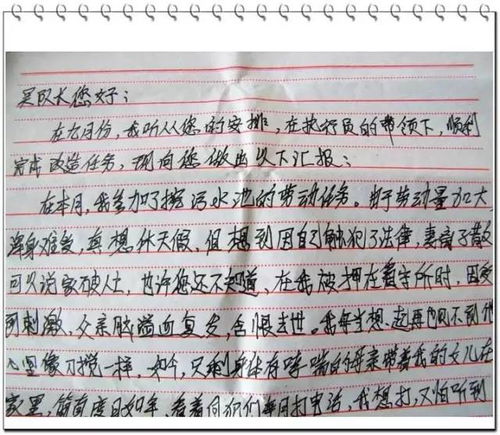 吴队长您好：
在九月份，我听从您的安排，在执行员的带领下，顺利
完成改造任务，现向您做出以下汇报：
在本月，我参加了挖污水池的劳动任务。由于劳动量加大
浑身难受，真想休天假，但想到因自己触犯了法律，妻离子散
可以说家破人亡，也许您还不知道，在我被押在看守所时，因受
到刺激，父亲脑溢血复发，含恨去世。我每当想起再也见不到他
心里像刀搅一样，如今，只剩身体有哮喘的母亲带着我的女儿在
家里，简直度日如年，看着同犯们每月打电话，我想打，又怕听到